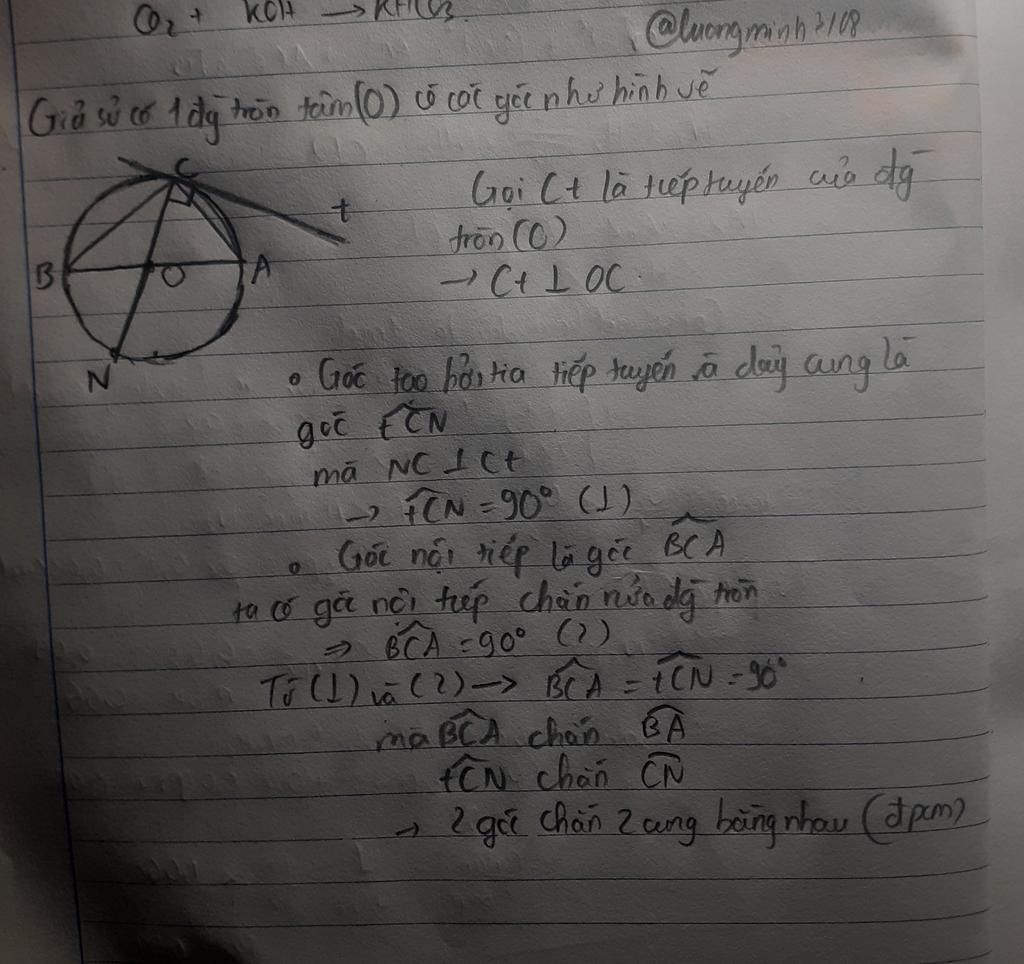 CO₂ + KOH → KHCO₃.
@luongminh7108
Giả sử có 1 đg tròn tâm (O) có các góc như hình vẽ
C
t
B O A
N
Gọi Ct là tiếp tuyến của đg
tròn (O)
→ Ct ⊥ OC
• Góc tạo bởi tia tiếp tuyến và dây cung là
góc tCN
mà NC ⊥ Ct
→ tCN = 90° (1)
• Góc nội tiếp là góc BCA
ta có góc nội tiếp chắn nửa đg tròn
⇒ BCA = 90° (2)
Từ (1) và (2) → BCA = tCN = 90°
mà BCA chắn BA
tCN chắn CN
→ 2 góc chắn 2 cung bằng nhau (đpcm)